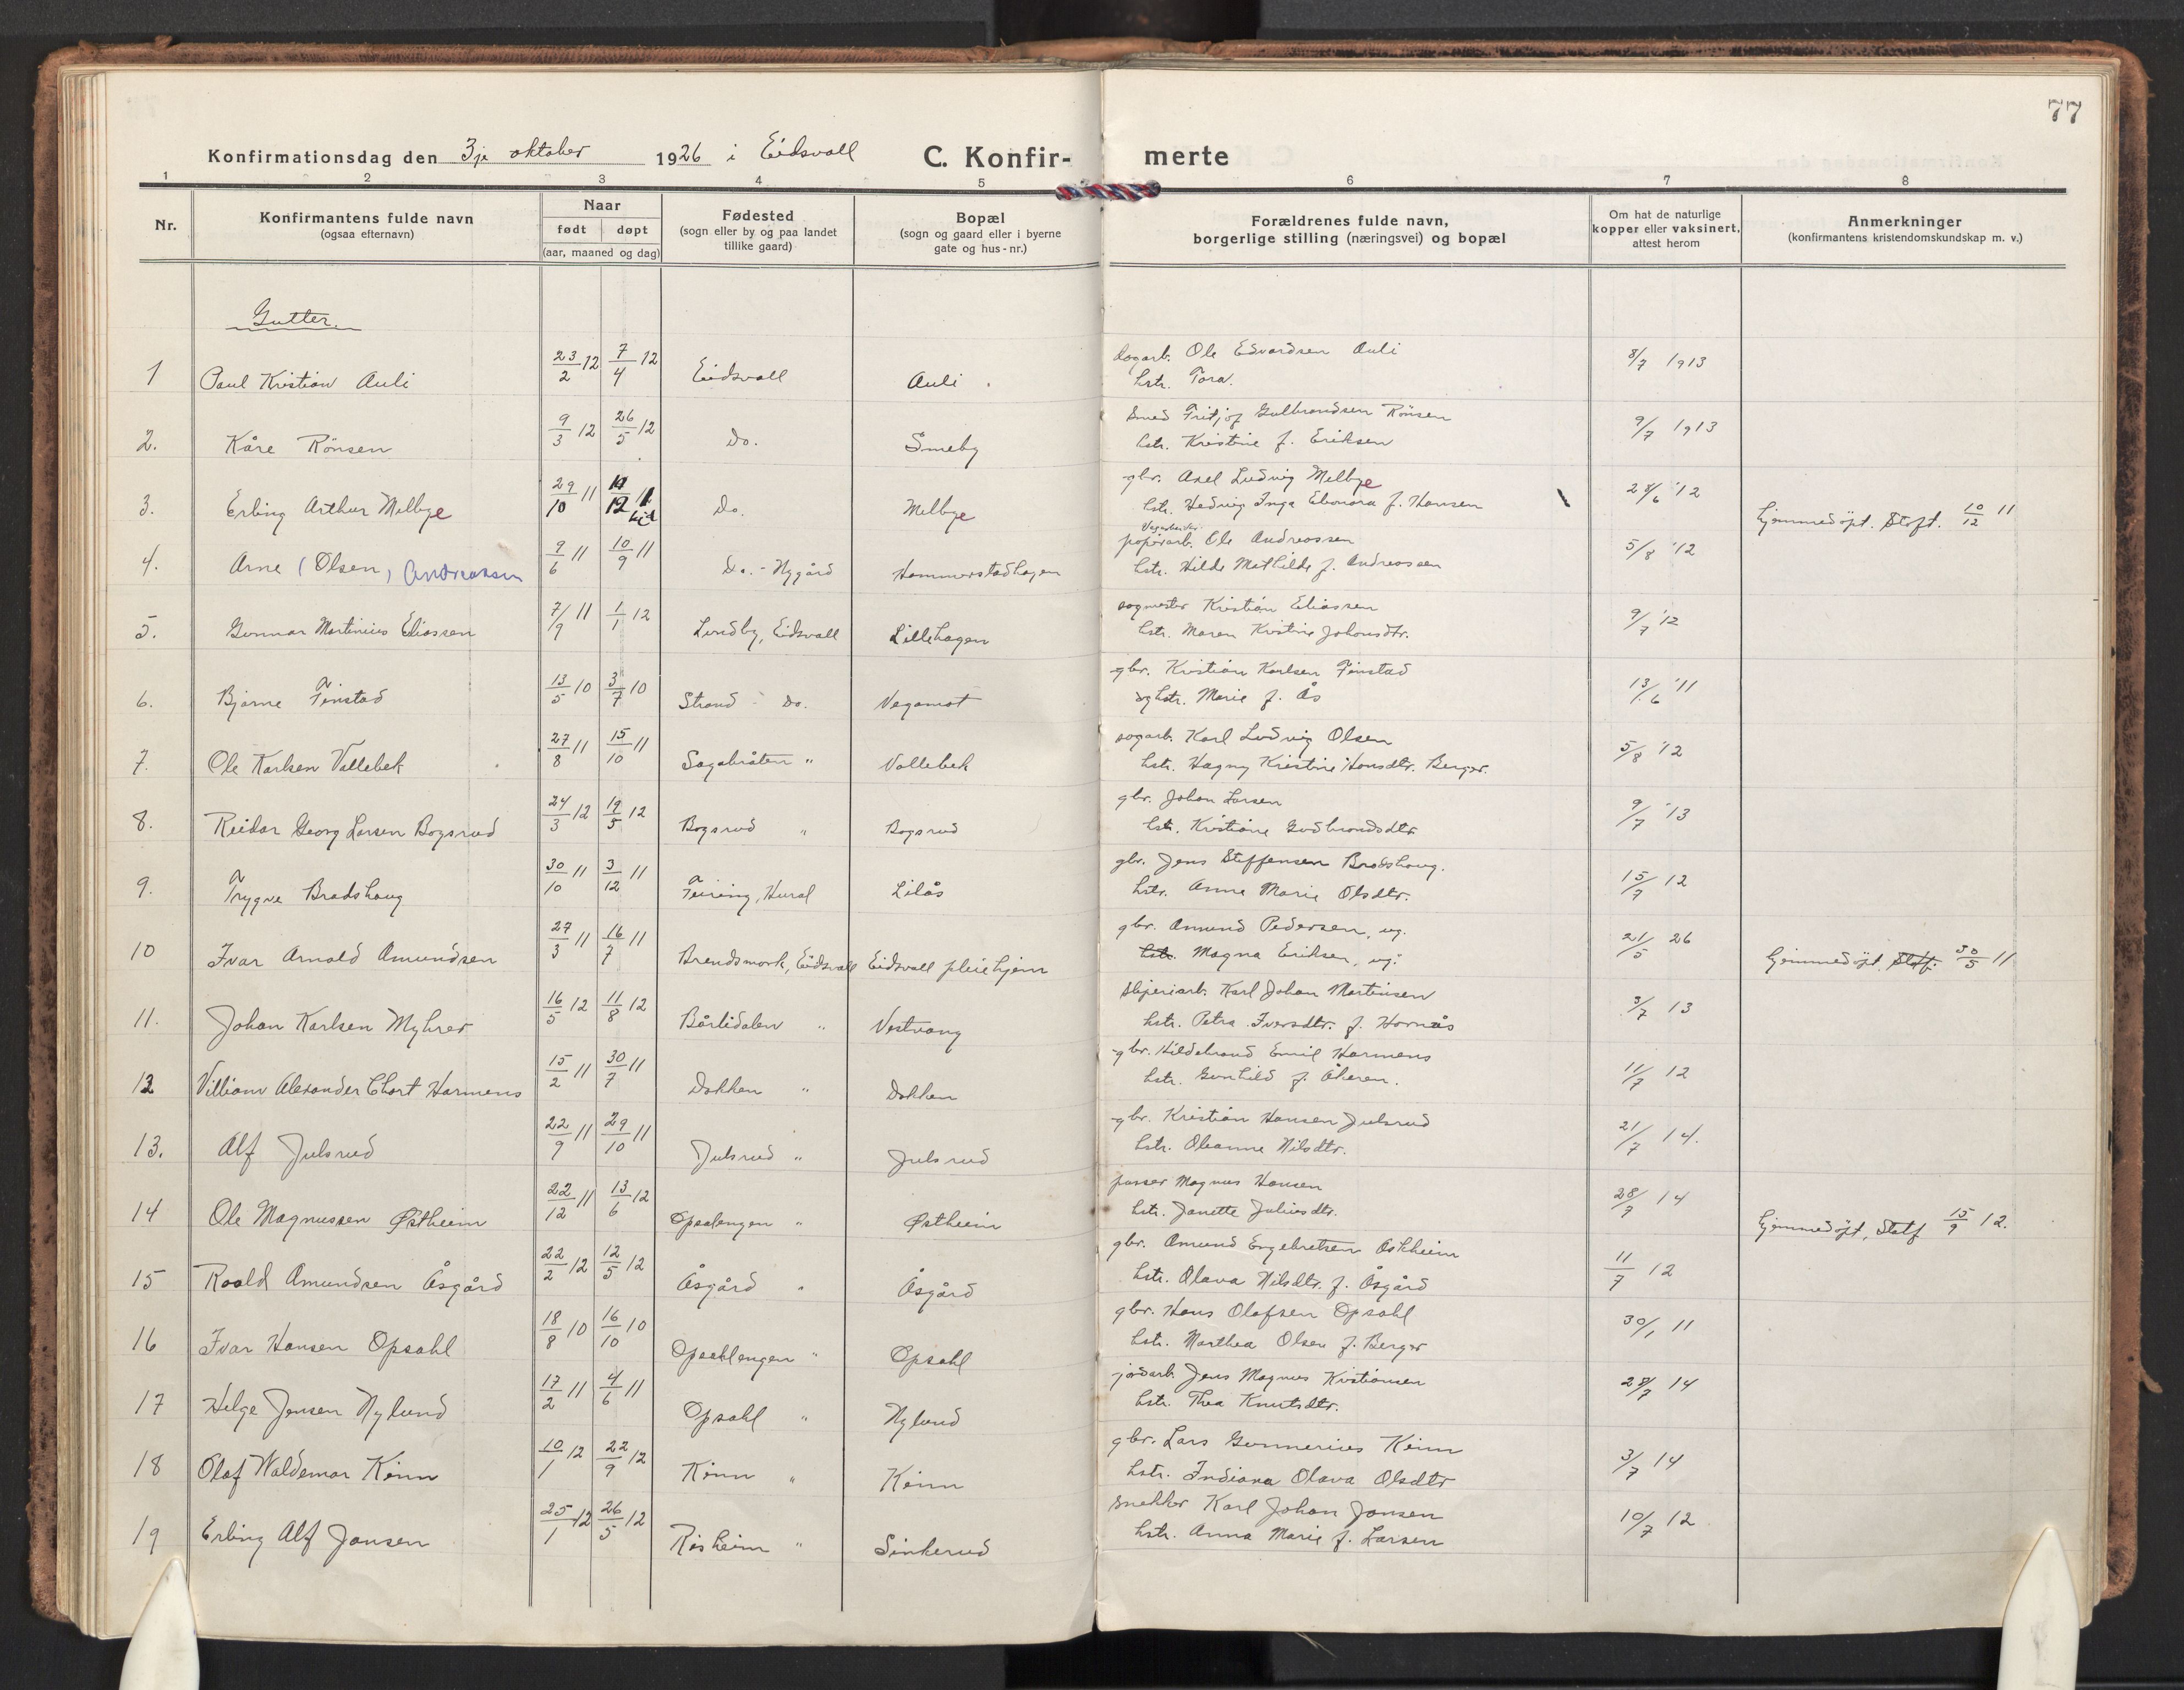 77
Konfirmationsdag den 3je oktober 1926 i Eidsvoll C. Konfir- merte
1 2 3 4 5 6 7 8
Nr. Konfirmantens fulde navn (ogsaa efternavn) Naar født døpt (aar, maaned og dag) Fødested (sogn eller by og paa landet tillike gaard) Bopæl (sogn og gaard eller i byerne gate og hus-nr.) Forældrenes fulde navn, borgerlige stilling (næringsvei) og bopæl Om hat de naturlige kopper eller vaksinert, attest herom Anmerkninger (konfirmantens kristendomskundskap m. v.)
Gutter.
1 Paul Kristian Auli 23/2 12 7/4 12 Eidsvoll Auli dagarb. Ole Edvardsen Auli 8/7 1913
hstr. Tora.
2. Kåre Rönsen 9/3 12 26/5 12 Do. Smeby Smed Fritjof Gulbrandsen Rönsen 9/7 1913
hstr. Kristine f. Eriksen
3. Erling Arthur Melbye 29/10 11 12 11 Do. Melbye gbr. Axel Ludvig Melbye 28/6 '12 hjemmedöpt. Stadf. 10/12 11
hstr. Hedvig Inga Elenora f. Hansen
4. Arne (Olsen) Andreassen 9/6 11 10/9 11 Do. - Nygård Hammerstadhagen papirarb. Ole Andreassen 5/8 '12
hstr. Hilda Mathilde f. Andreassen
5. Gunnar Martinius Eliassen 7/9 11 1/1 12 Lundby, Eidsvoll Lillehagen sagmester Kristian Eliassen 9/7 '12
hstr. Maren Kristine Johansdtr.
6. Bjarne Finstad 13/5 10 3/7 10 Strand - Do. Vegamot gbr. Kristian Karlsen Finstad 13/6 '11
og hstr. Marie f. Ås
7. Ole Karlsen Vallebek 27/8 11 15/10 11 Sagabråten " Vallebek sagarb. Karl Ludvig Olsen 5/8 '12
hstr. Hagny Kristine Hansdtr. Berger.
8. Reidar Georg Larsen Bogsrud 24/3 12 19/5 12 Bogsrud " Bogsrud gbr. Johan Larsen 9/7 '13
hstr. Kristiane Gudbrandsdtr
9. Trygve Bradshaug 30/10 11 3/12 11 Feiring, Hural Lilås gbr. Jens Steffensen Bradshaug. 15/7 12
hstr. Anne Marie Olsdtr.
10 Ivar Arnold Amundsen 27/3 11 16/7 11 Brendsmork, Eidsvoll Eidsvoll pleiehjem gbr. Amund Pedersen, ug. 21/5 26 hjemmedöpt, Stadf. 30/5 11
hstr. Magna Eriksen, ug.
11. Johan Karlsen Myhrer 16/5 12 11/8 12 Bårlidalen " Vestvang sliperiarb. Karl Johan Martinsen 3/7 13
hstr. Petra Iversdtr. f. Hornås
12 Villiam Alexander Chort Harmens 15/2 11 30/7 11 Dokken " Dokken gbr. Hildebrand Emil Harmens 11/7 12
hstr. Gunhild f. Åkeren.
13. Alf Julsrud 22/9 11 29/10 11 Julsrud " Julsrud gbr. Kristian Hansen Julsrud 21/7 14.
hstr. Oleanne Nilsdtr.
14 Ole Magnussen Østheim 22/12 11 13/6 12 Opsalengen " Østheim passer Magnus Hansen 28/7 14 hjemmedöpt, Stadf 15/9 12.
hstr. Janette Juliusdtr.
15 Roald Amundsen Åsgård 22/2 12 12/5 12 Åsgård " Åsgård gbr. Amund Engebretsen Askheim 11/7 12
hstr. Olava Nilsdtr. f. Åsgård
16 Ivar Hansen Opsahl 18/8 10 16/10 10 Opsahlengen " Opsahl gbr. Hans Olafsen Opsahl 30/1 11
hstr. Marthea Olsen f. Berger
17 Helge Jensen Nylund 17/2 11 4/6 11 Opsahl " Nylund jordarb. Jens Magnus Kristiansen 28/7 14
hstr. Thea Knutsdtr.
18 Olaf Waldemar Kinn 10/1 12 22/9 12 Kinn " Kinn gbr. Lars Gunnerius Kinn 3/7 14
hstr. Indiana Olava Olsdtr
19 Erling Alf Jansen 25/1 12 26/5 12 Risheim " Sinkerud snekker Karl Johan Jansen 10/7 12
hstr. Anna Marie f. Larsen